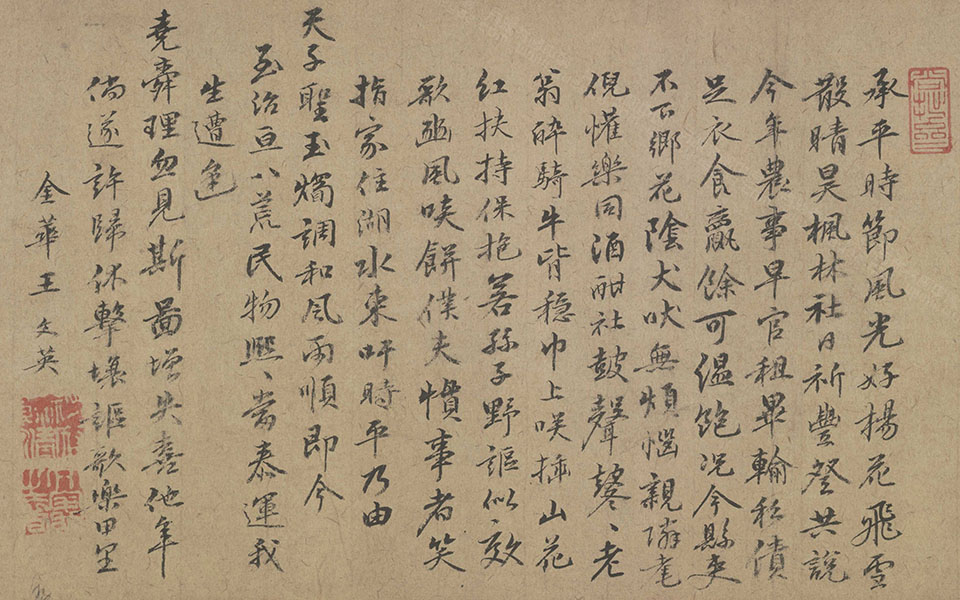 承平時節風光好楊花飛雪
散晴昊楓林社日祈豐登共說
今年農事早官租畢輸私債
足衣食贏餘可溫飽況今縣吏
不下鄉花陰犬吠無煩惱親鄰耄
倪懽樂同酒酣社鼓聲鼕〻老
翁醉騎牛背穩巾上咲插山花
紅扶持保抱若孫子野謳似〻效
歌豳風啖餅僕夫慣事者笑
指家住湖水東吁時平乃由
天子聖玉燭調和風雨順即今
至治亘八荒民物熙〻當泰運我
生遭逢
堯舜理忽見斯圖增失喜他年
倘遂許歸休擊壤謳歌樂田里
金華王文英